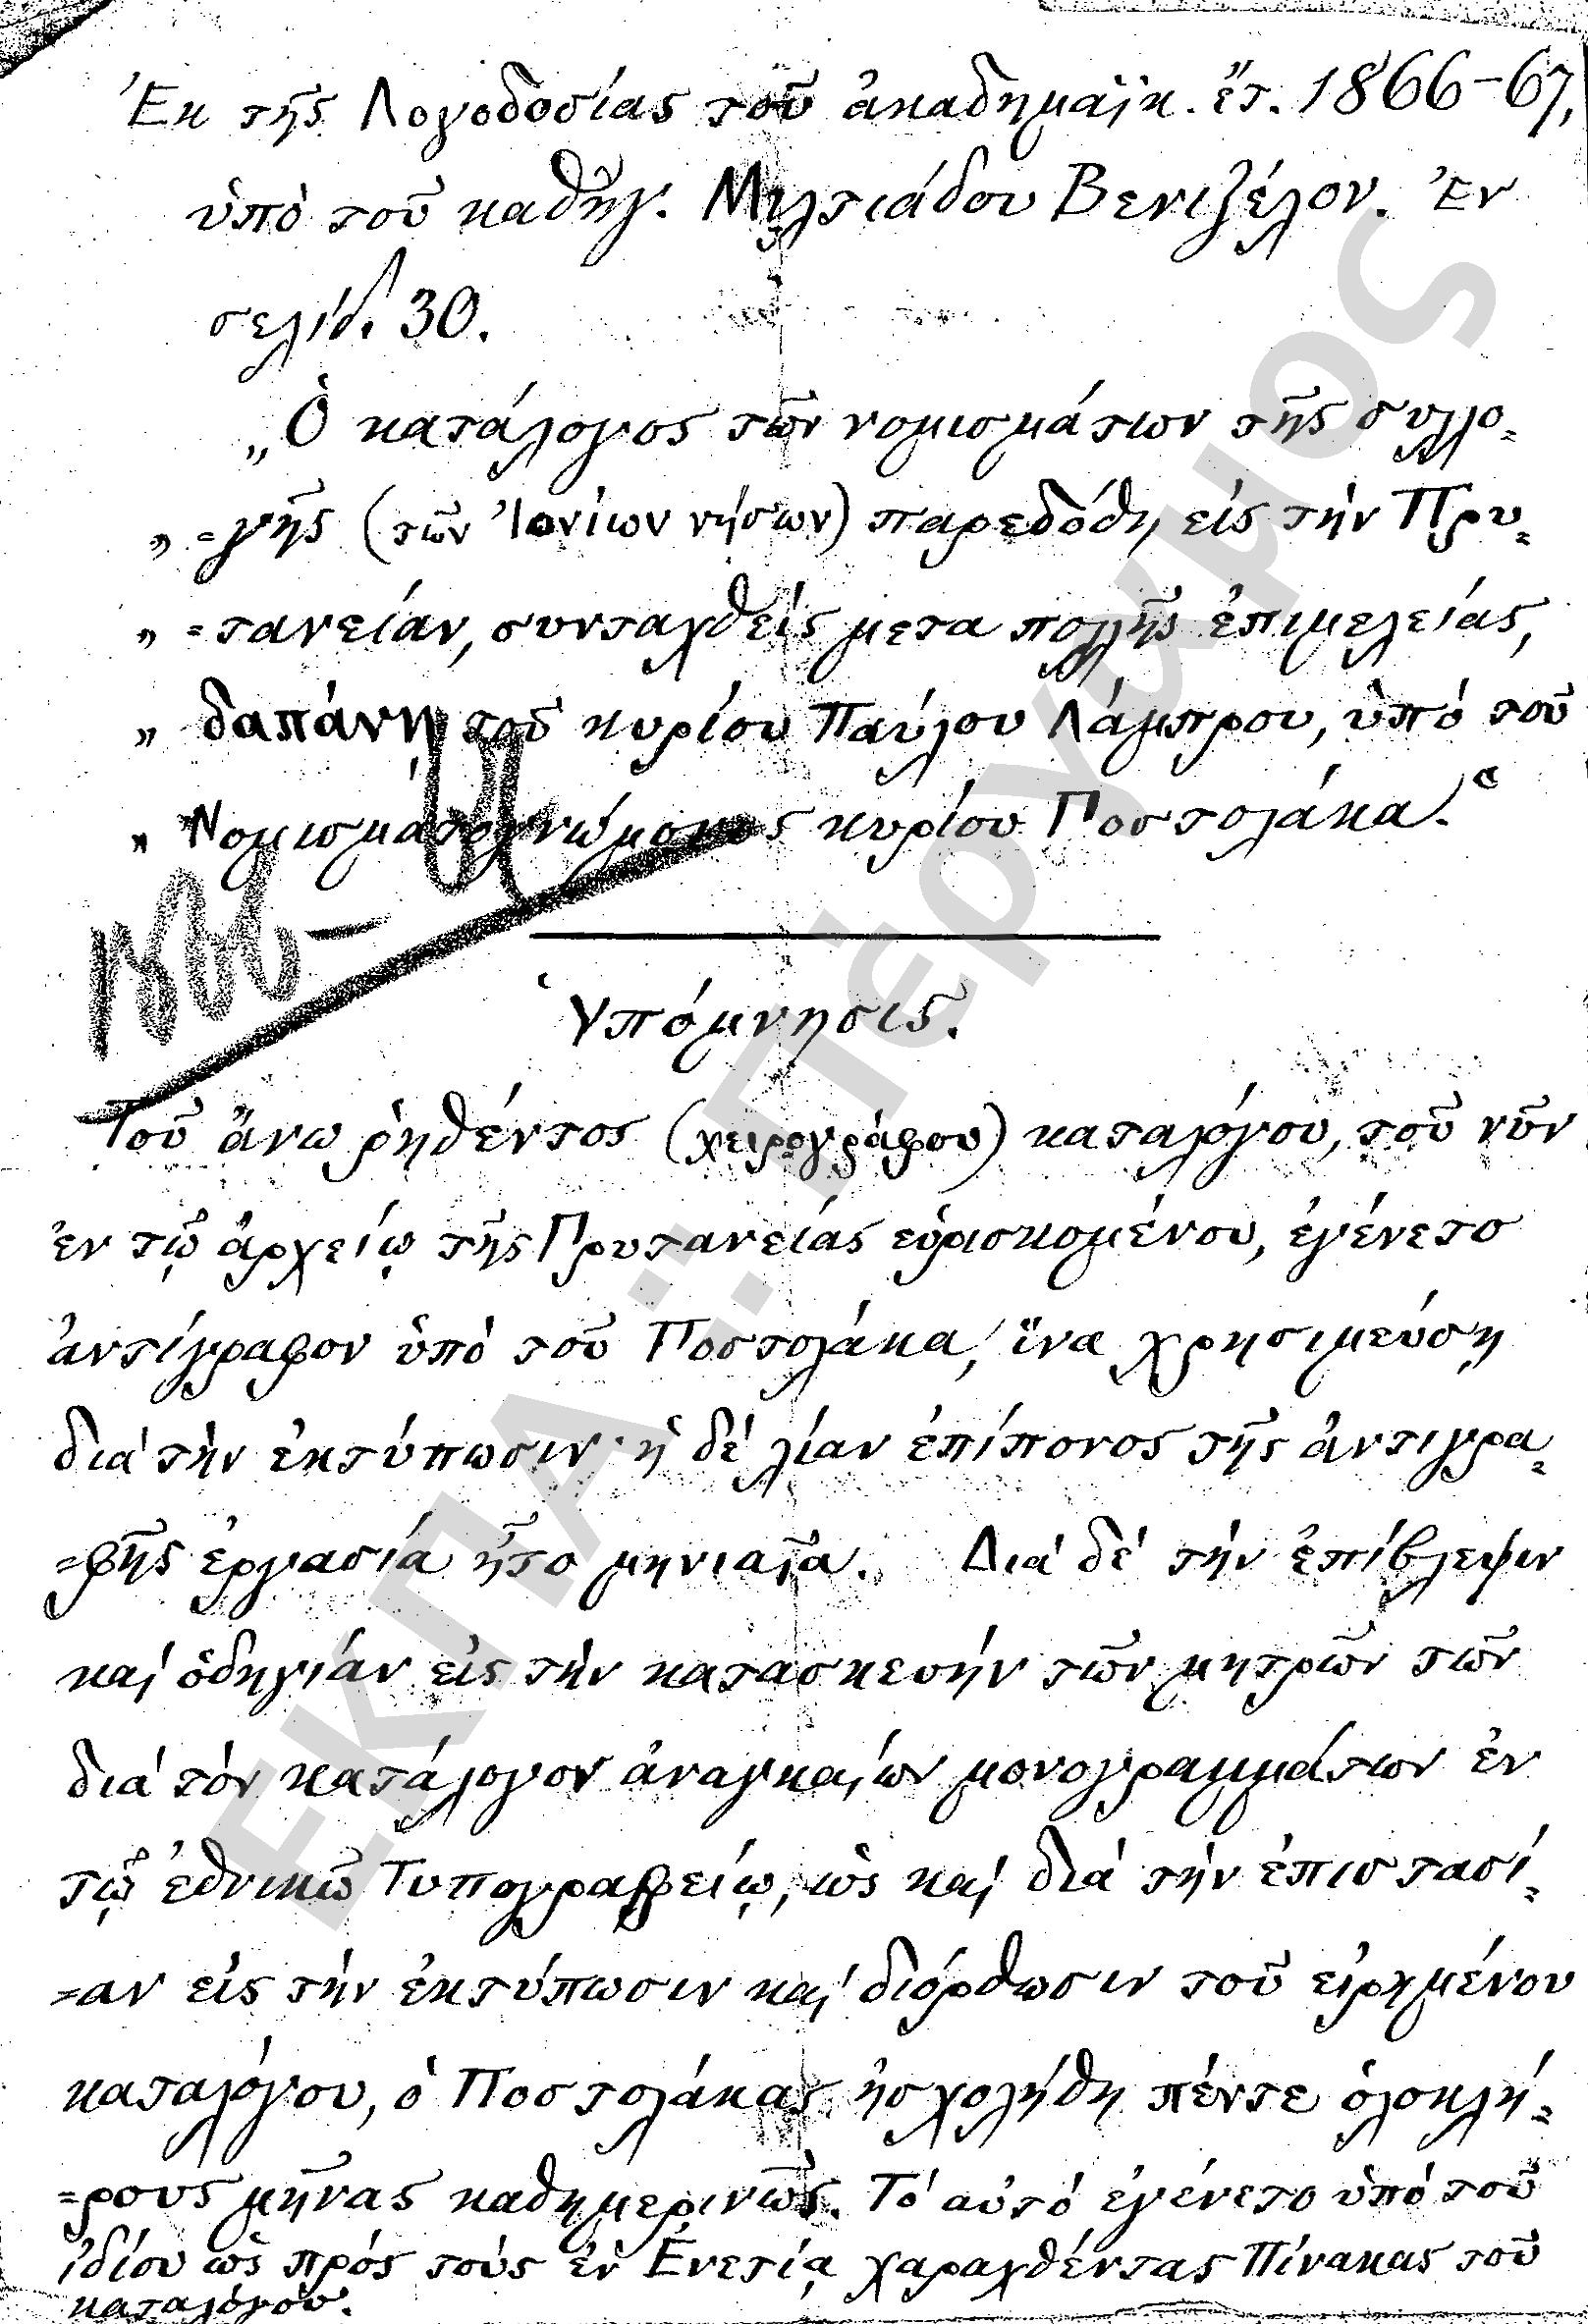 Ἐκ τῆς Λογοδοσίας τοῦ ἀκαδημαϊκ. ἔτ. 1866-67,
ὑπὸ τοῦ καθηγ. Μιλτιάδου Βενιζέλου. Ἐν
σελίδ. 30.
„Ὁ κατάλογος τῶν νομισμάτων τῆς συλλο=
„ =γῆς (τῶν Ἰονίων νήσων) παρεδόθη εἰς τὴν Πρυ=
„ =τανείαν, συνταχθεὶς μετα πολλῆς ἐπιμελείας,
„ δαπάνῃ τοῦ κυρίου Παύλου Λάμπρου, ὑπὸ τοῦ
„ Νομισματογνώμονος κυρίου Ποστολάκα."
1866-67
Ὑπόμνησις.
Τοῦ ἄνω ῥηθέντος (χειρογράφου) καταλόγου, τοῦ νῦν
ἐν τῷ ἀρχείῳ τῆς Πρυτανείας εὑρισκομένου, ἐγένετο
ἀντίγραφον ὑπὸ τοῦ Ποστολάκα, ἵνα χρησιμεύσῃ
διὰ τὴν ἐκτύπωσιν· ἡ δὲ λίαν ἐπίπονος τῆς ἀντιγρα=
=φῆς ἐργασία ἦτο μηνιαῖα. Διὰ δὲ τὴν ἐπίβλεψιν
καὶ ὁδηγίαν εἰς τὴν κατασκευὴν τῶν μητρῶν τῶν
διὰ τὸν κατάλογον ἀναγκαίων μονογραμμάτων ἐν
τῷ ἐθνικῷ Τυπογραφείῳ, ὡς καὶ διὰ τὴν ἐπιστασί=
=αν εἰς τὴν ἐκτύπωσιν καὶ διόρθωσιν τοῦ εἰρημένου
καταλόγου, ὁ Ποστολάκας ἠσχολήθη πέντε ὁλοκλή=
=ρους μῆνας καθημερινῶς. Τὸ αὐτὸ ἐγένετο ὑπὸ τοῦ
ἰδίου ὡς πρὸς τοὺς ἐν Ἑνετίᾳ χαραχθέντας Πίνακας τοῦ
καταλόγου.
ΕΚΠΑ:: Πέργαμος